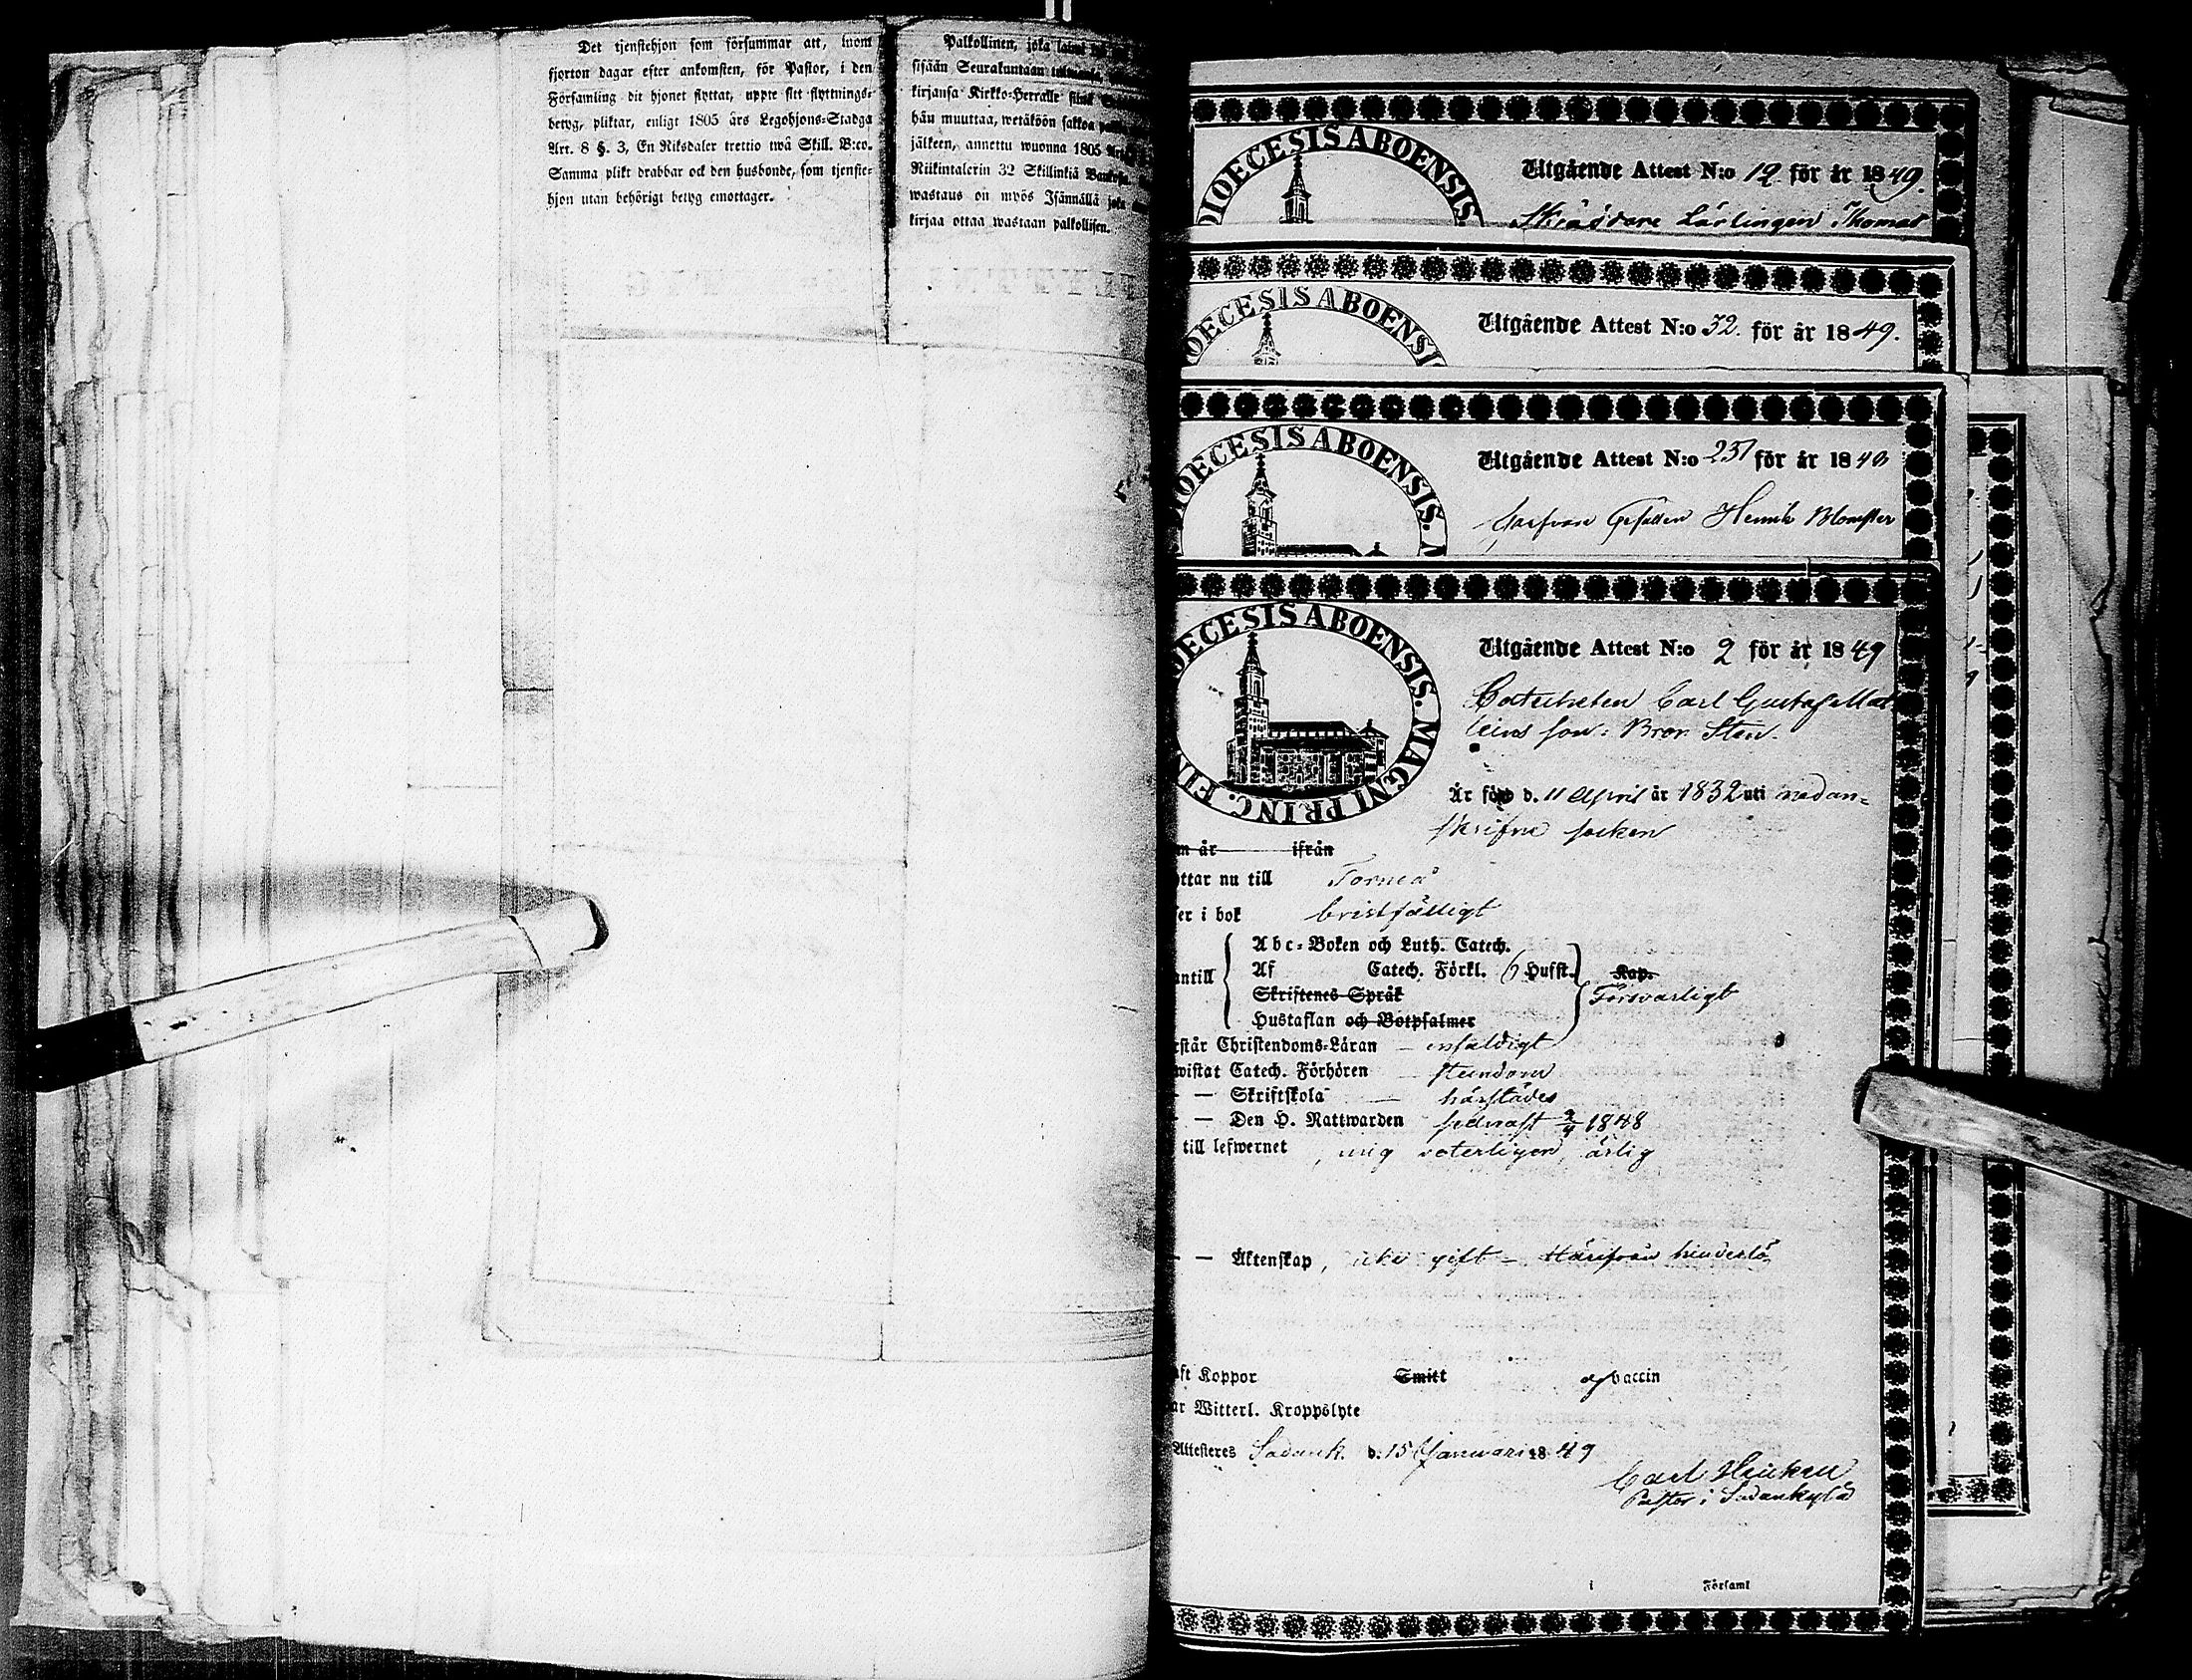 Det tjenstehjon som försummar att, inom
fjorton dagar efter ankomsten, för Pastor, i den
Församling dit hjonet flyttat, uppte sitt flyttnings-
betyg, pliktar, enligt 1805 års Legohjons-Stadga
Art. 8 §. 3, En Riksdaler trettio twå Skill. B:co.
Samma plikt drabbar ock den husbonde, som tjenste-
hjon utan behörigt betyg emottager.
Palkollinen, joka
sisään Seurakuntaan
kirjansa Kirkko-Herralle
hän muuttaa, wetäköön sakkoa
jälkeen, annettu wuonna 1805
Riikintalerin 32 Skillinkiä
wastaus on myös Isännällä joka
kirjaa ottaa wastaan palkollisen.
DIOECESIS ABOENSIS.
Utgående Attest N:o 12. för år 1849.
Skräddare Lärlingen Thomas
OECESIS ABOENSI
Utgående Attest N:o 32. för år 1849.
IOECESIS ABOENSIS. M
Utgående Attest N:o 251 för år 1849
Garfvare Gesällen Henrik Blomster
OECESIS ABOENSIS. MAGNI PRINC. FIN
Utgående Attest N:o 2 för år 1849
Catecheten Carl Gustaf Mat
leins son: Bror Sten.
År född d. 11 April år 1832 uti nedan-
skrifne socken
m år ifrån
ttar nu till Torneå
er i bok bristfälligt
Abc-Boken och Luth. Catech.
antill Af Catech. Förkl. 6 Hufst. Kap.
Skriftenes Språk Försvarligt
Hustaflan och Botpsalmer
rstår Christendoms-Läran – enfaldigt
wistat Catech. Förhören – stundom
– – Skriftskola – härstädes
– – Den H. Nattwarden sednast 2/4 1848
till lefwernet, mig veterligen, ärlig
– – Äktenskap, icke gift – Härifrån hinderlös
ft Koppor Smitt af vaccin
ar Witterl. Kroppslyte
Attesteres Sodank. d. 15 Januari 1849
Carl Heiken
Pastor i Sodankylä
i Församl